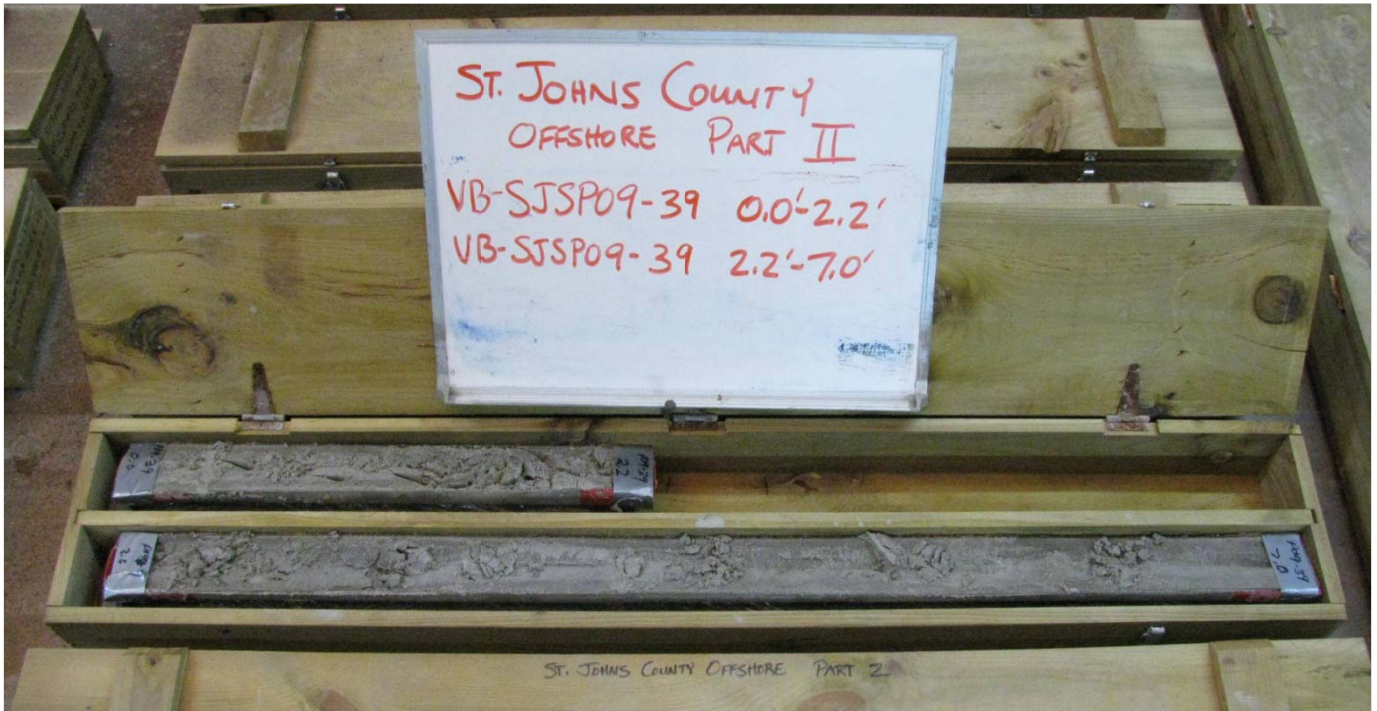 ST. JOHNS COUNTY
OFFSHORE PART II
VB-SJSP09-39 0.0'-2.2'
VB-SJSP09-39 2.2'-7.0'
0.0
2.2
2.2
7.0
ST. JOHNS COUNTY OFFSHORE PART 2